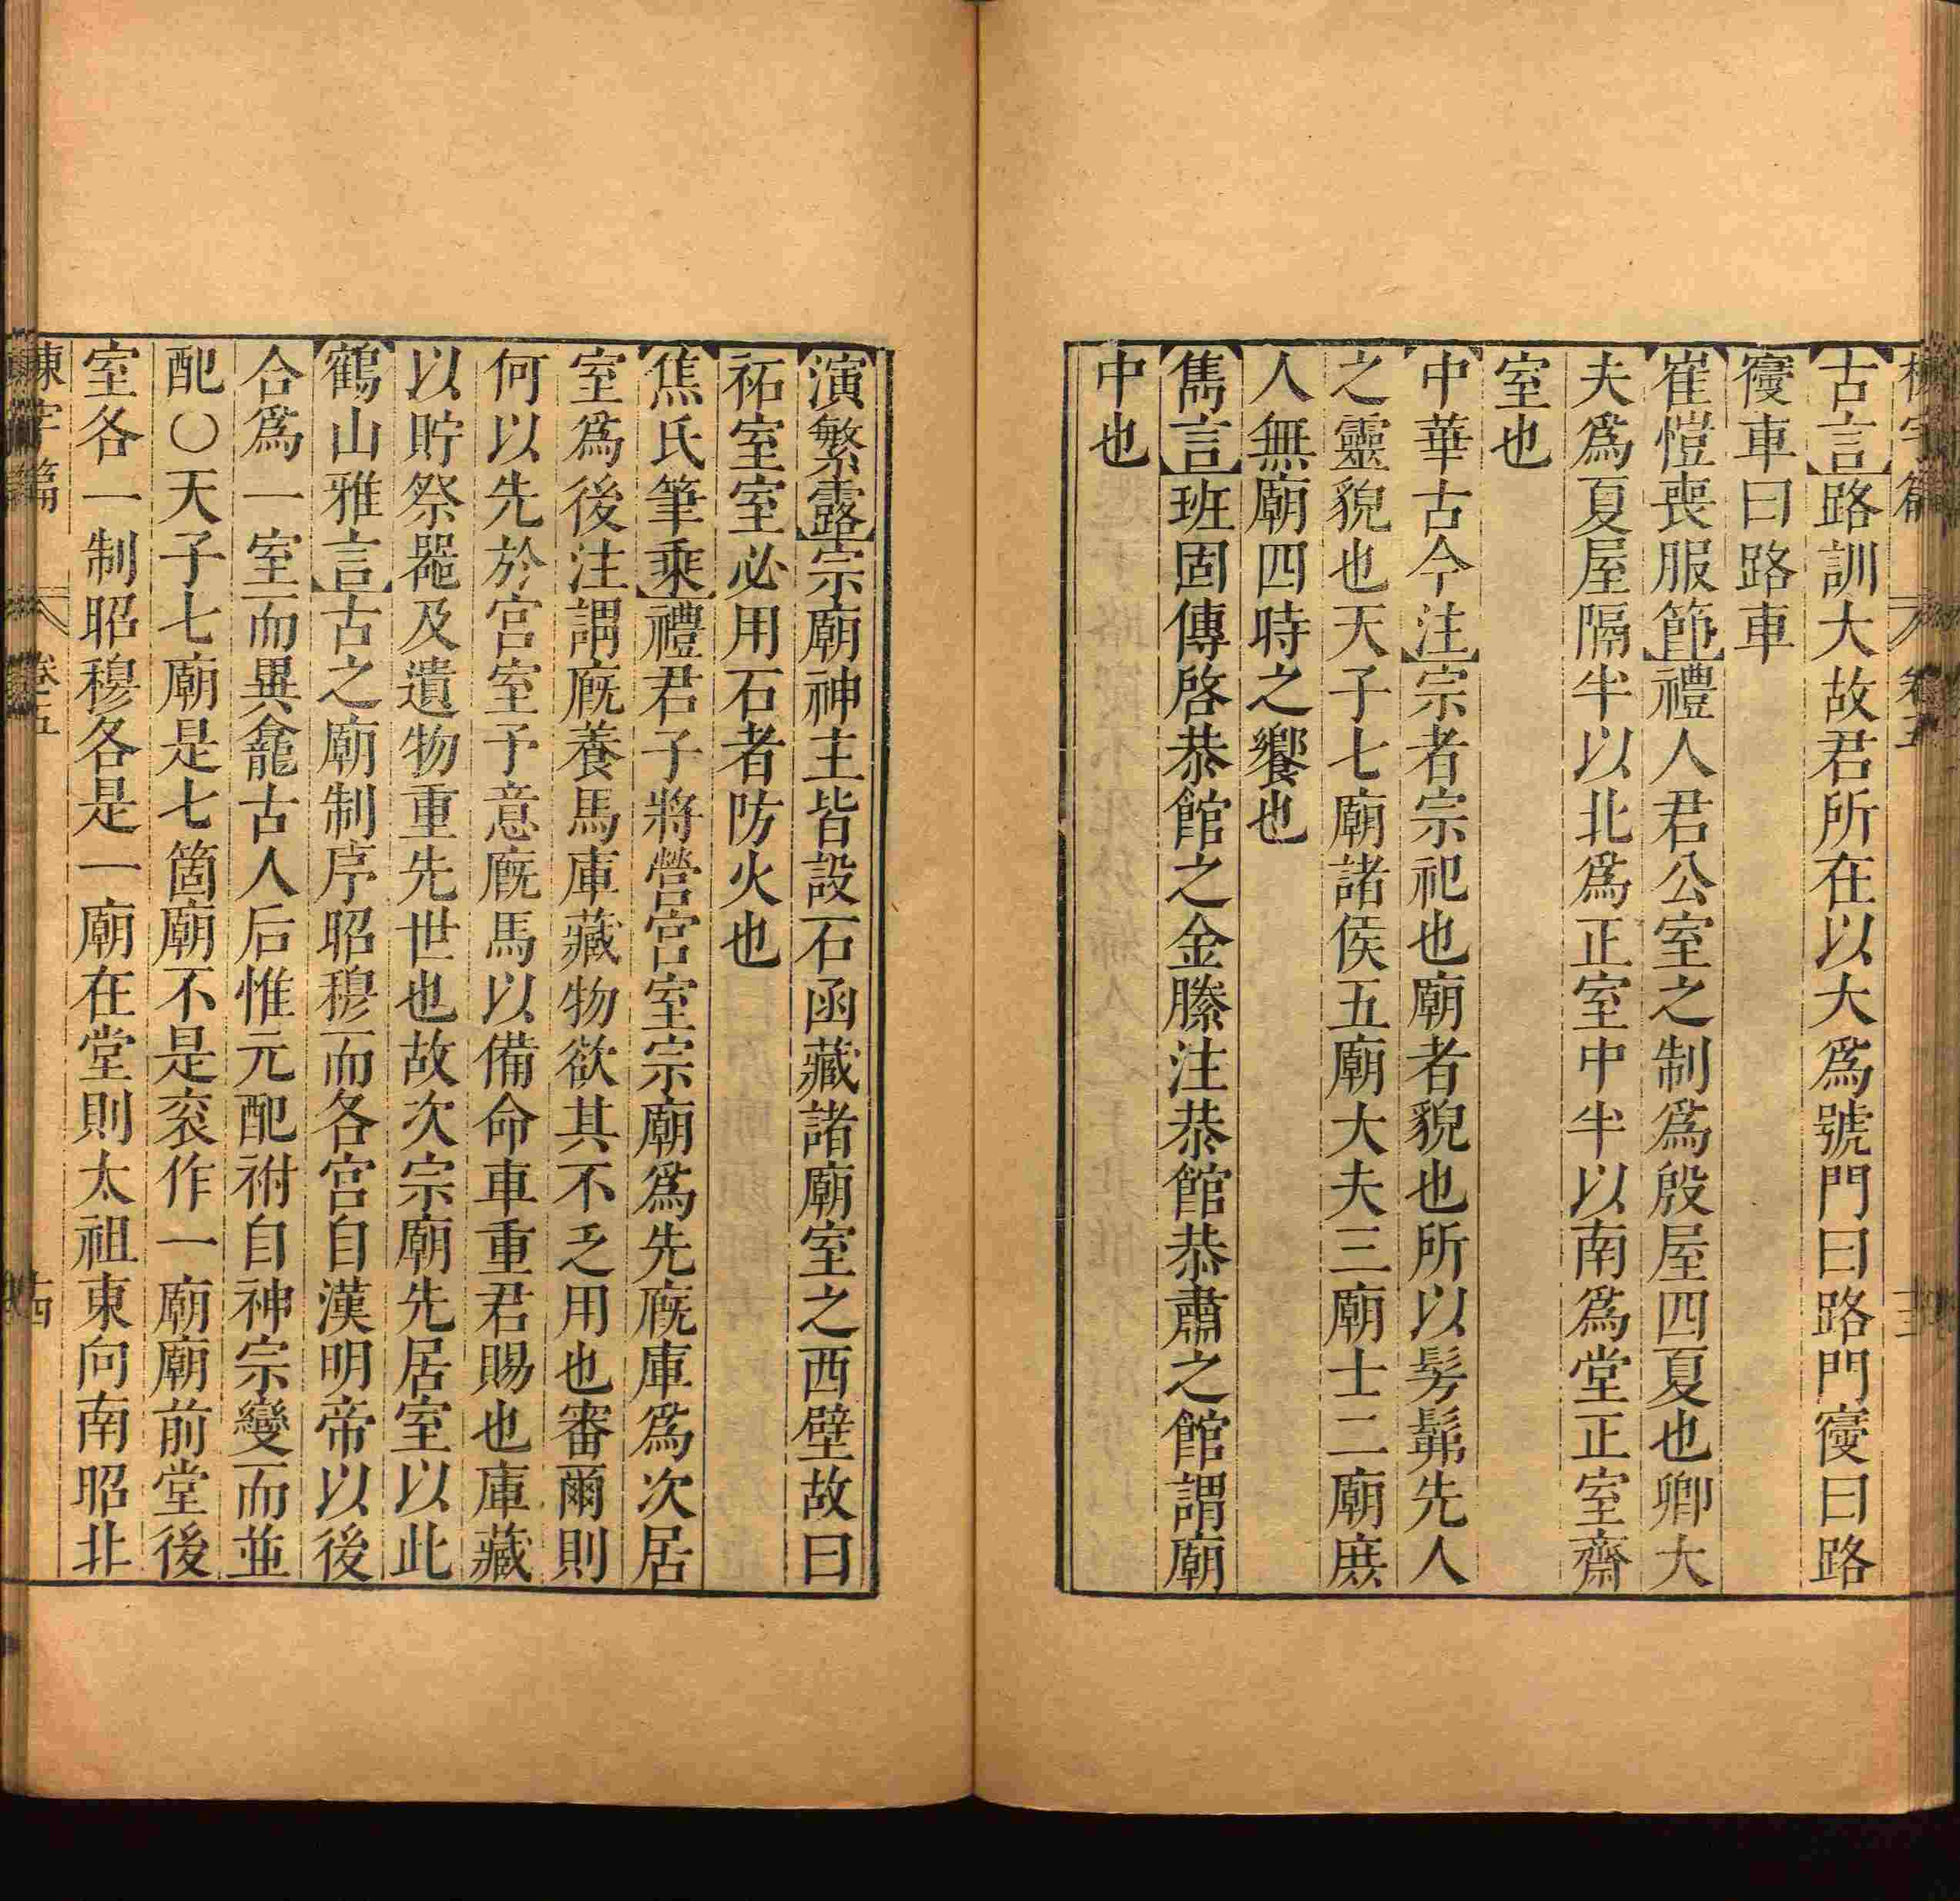 古言路訓大故君所在以大爲號門曰路門寑曰路
寑車曰路車
崔愷喪服節禮人君公室之制爲殷屋四夏也卿大
夫爲夏屋隔半以北爲正室中半以南爲堂正室齋
室也
中華古今注宗者宗祀也廟者貌也所以髣髴先人
之靈貌也天子七廟諸侯五廟大夫三廟士二廟庶
人無廟四時之饗也
雋言班固傳啓恭館之金縢注恭館恭肅之館謂廟
中也
演繁露宗廟神主皆設石函藏諸廟室之西壁故曰
祏室室必用石者防火也
焦氏筆乘禮君子將營宮室宗廟爲先廐庫爲次居
室爲後注謂廐養馬庫藏物欲其不乏用也審爾則
何以先於宮室予意廐馬以備命車重君賜也庫藏
以貯祭噐及遺物重先世也故次宗廟先居室以此
鶴山雅言古之廟制序昭穆而各宮自漢明帝以後
合爲一室而異龕古人后惟元配祔自神宗變而並
配○天子七廟是七箇廟不是衮作一廟廟前堂後
室各一制昭穆各是一廟在堂則太祖東向南昭北
卷五
十四